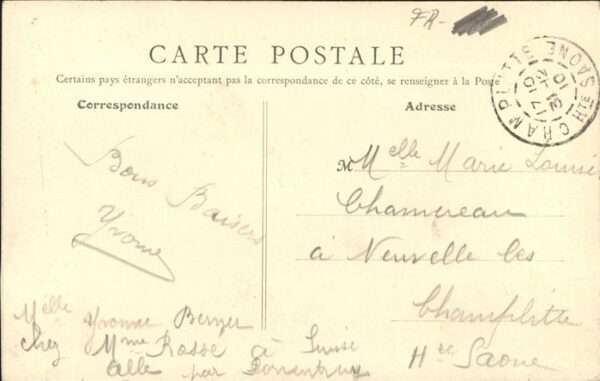 FR-
CARTE POSTALE
Certains pays étrangers n'acceptant pas la correspondance de ce côté, se renseigner à la Poste
Correspondance
Adresse
Bons Baisers
Yvonne
M Melle Marie Louise
Chamereau
à Neuvelle les
Champlitte
Hte Saone
Melle Yvonne
chez Mme Rosse à
Alle par Porrentruy
Suisse
CHAMPLITTE
HTE SAONE